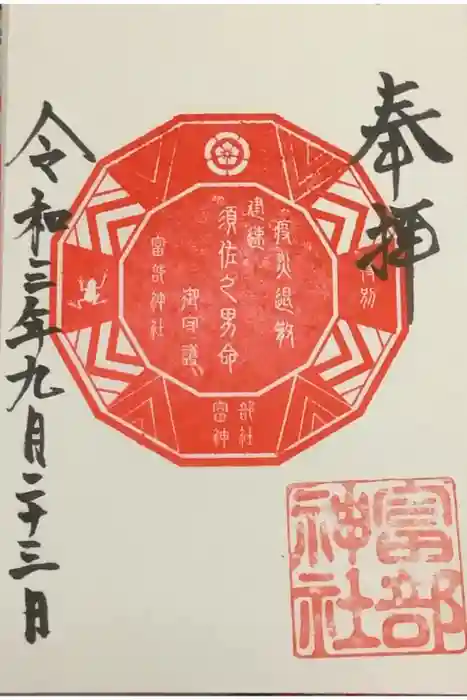 奉拝
特別
疫災退散
建速
須佐之男命
御守護
富部神社
富部神社
富部神社
令和三年九月二十三日